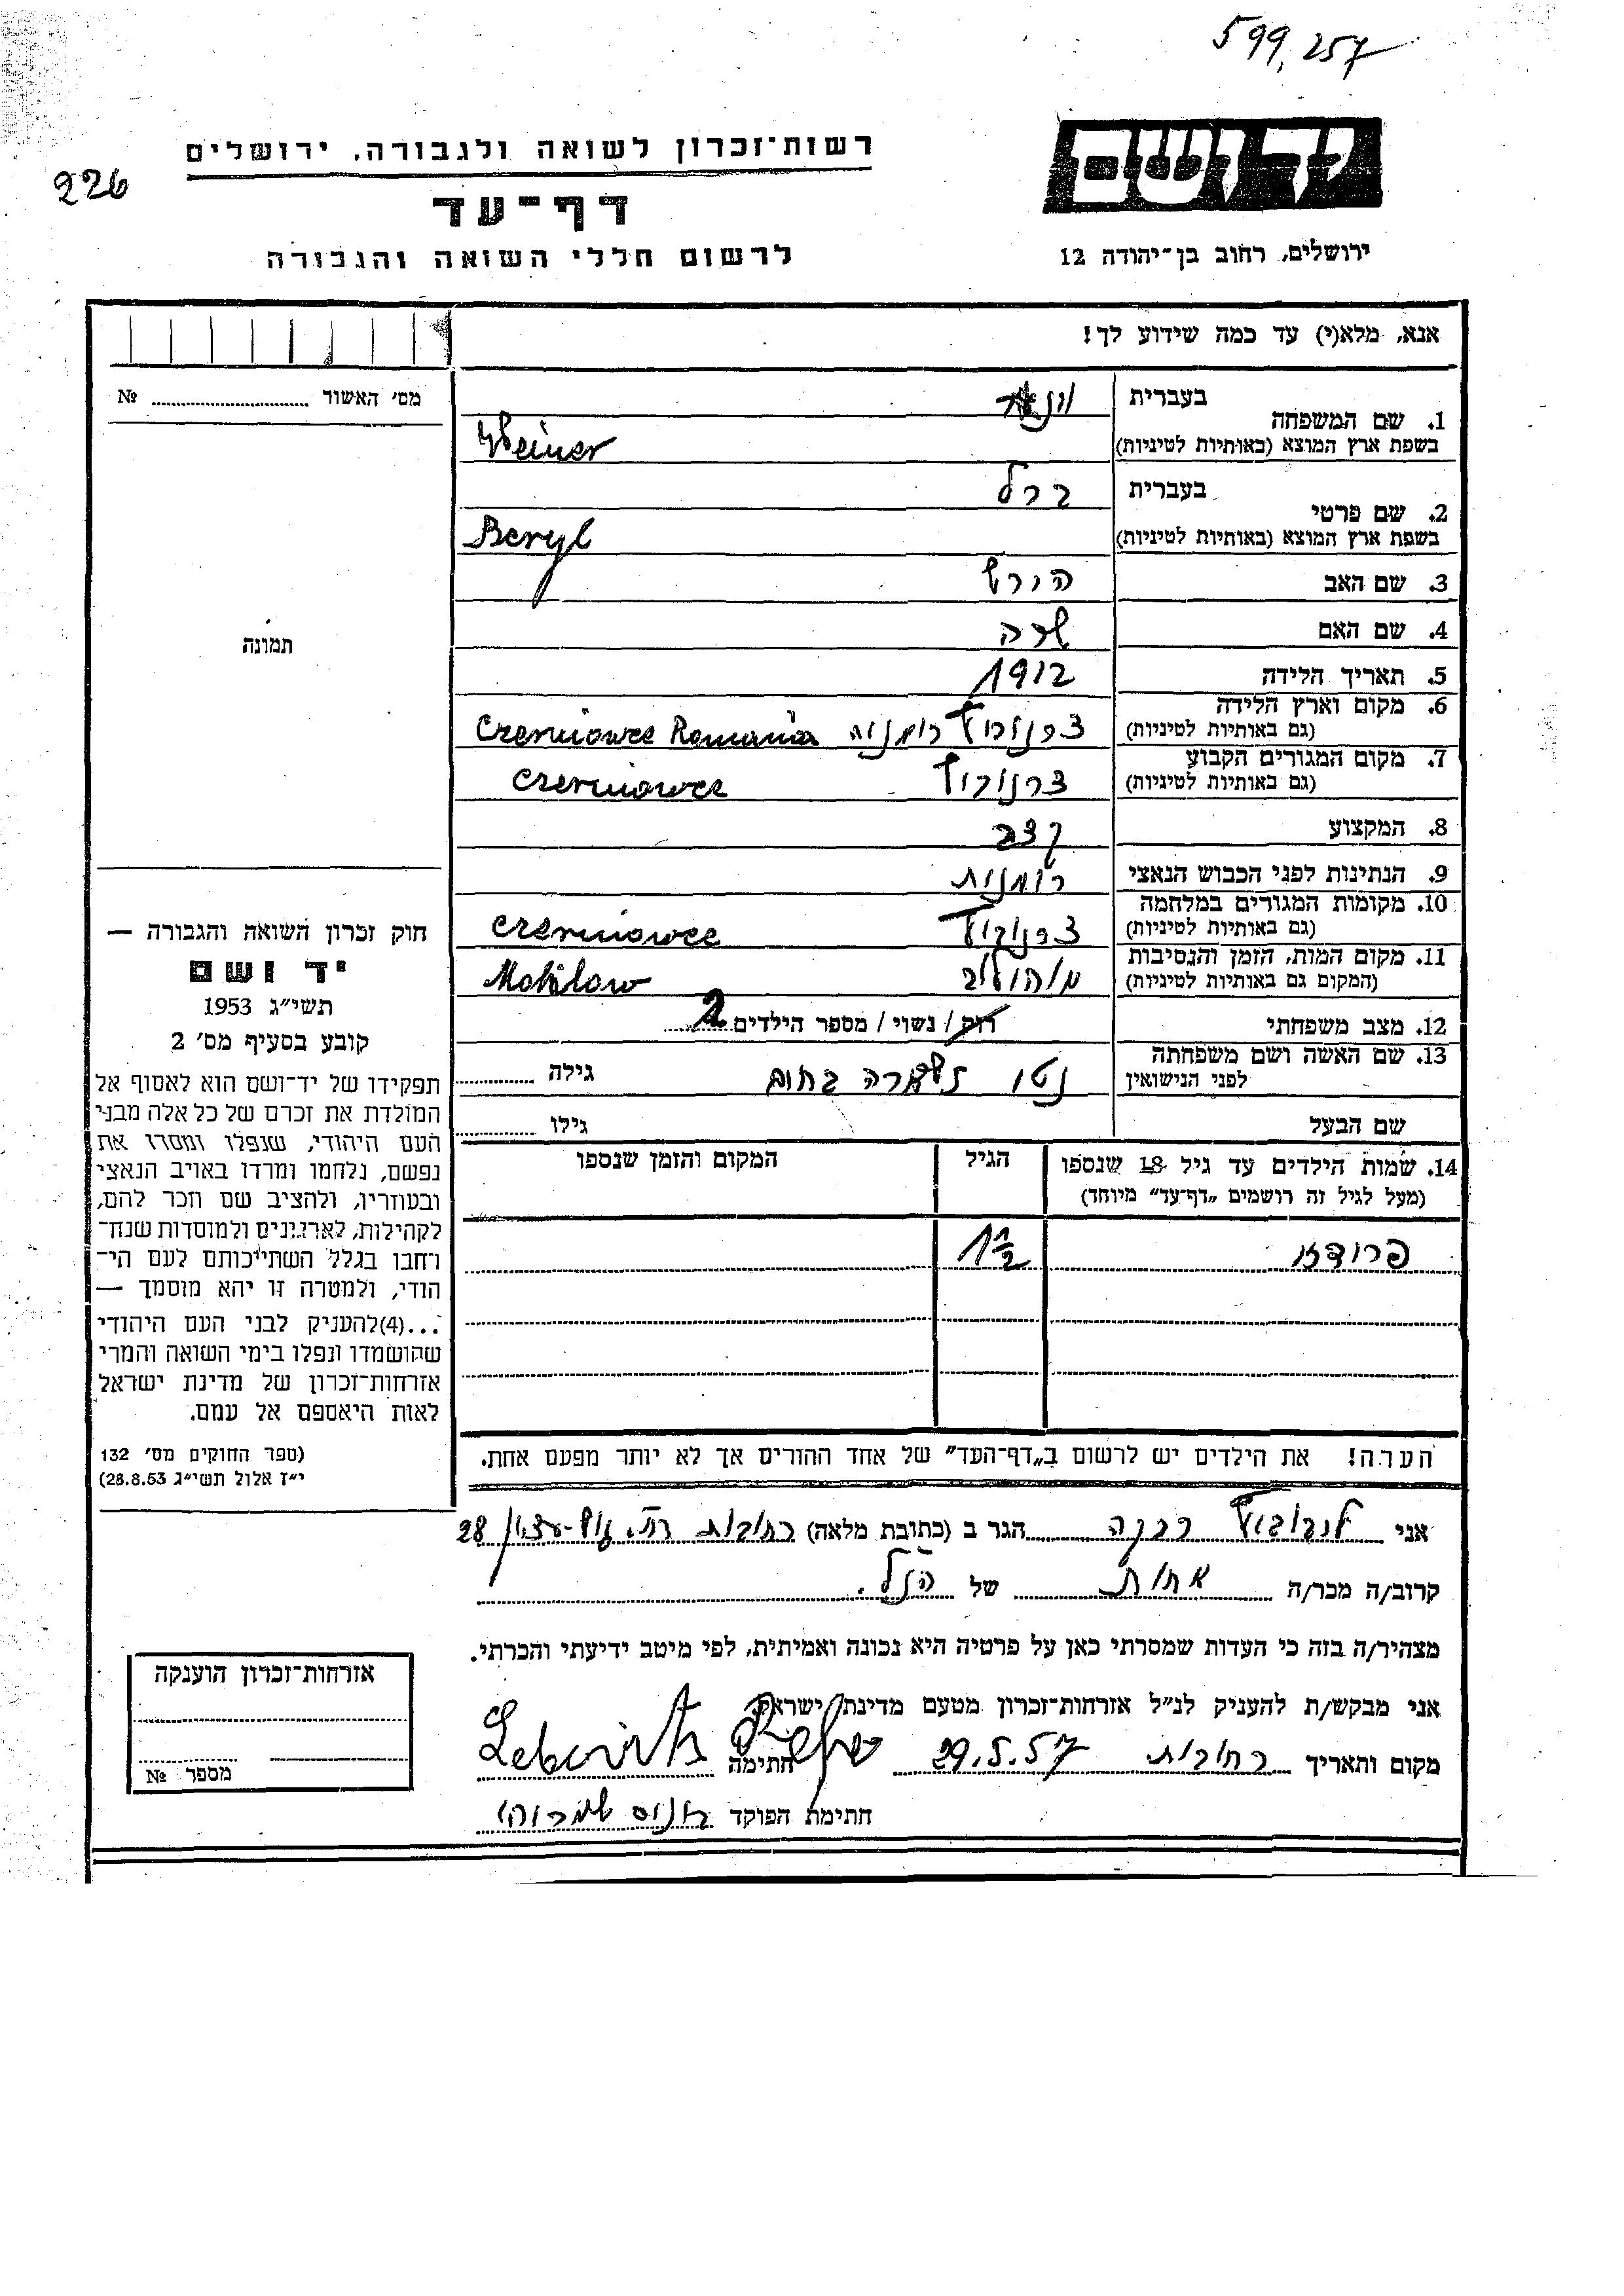 599,257
רשות־זכרון לשואה ולגבורה, ירושלים
יד ושם
226
דף־עד
לרשום חללי השואה והגבורה
ירושלים, רחוב בן־יהודה 12
אנא, מלא(י) עד כמה שידוע לך!
מס׳ האשור № 
1. שם המשפחה
בעברית
בשפת ארץ המוצא (באותיות לטיניות) Weiner
2. שם פרטי
בעברית ברל
בשפת ארץ המוצא (באותיות לטיניות) Beryl
3. שם האב הורש
4. שם האם שרה
5. תאריך הלידה 1912
6. מקום וארץ הלידה
(גם באותיות לטיניות) צרנוביץ רומניה Czerniowce Romania
7. מקום המגורים הקבוע
(גם באותיות לטיניות) צרנוביץ Czerniowce
8. המקצוע קצב
9. הנתינות לפני הכבוש הנאצי רומנית
10. מקומות המגורים במלחמה
(גם באותיות לטיניות) צרנוביץ Czerniowce
11. מקום המות, הזמן והנסיבות
(המקום גם באותיות לטיניות) מוהילב Mohilow
12. מצב משפחתי רווק / נשוי / מספר הילדים 2
13. שם האשה ושם משפחתה
לפני הנישואין נטי גילה
שם הבעל גילו
14. שמות הילדים עד גיל 18 שנספו
(מעל לגיל זה רושמים „דף־עד״ מיוחד)
הגיל
המקום והזמן שנספו
1 1/2
הערה! את הילדים יש לרשום ב„דף־העד״ של אחד ההורים אך לא יותר מפעם אחת.
אני לבוביץ רבקה הגר ב (כתובת מלאה) רחובות 28
קרוב/ה מכר/ה אחות של הנ״ל.
מצהיר/ה בזה כי העדות שמסרתי כאן על פרטיה היא נכונה ואמיתית, לפי מיטב ידיעתי והכרתי.
אני מבקש/ת להעניק לנ״ל אזרחות־זכרון מטעם מדינת ישראל
מקום ותאריך רחובות 29.5.57 חתימה
חתימת הפוקד
תמונה
חוק זכרון השואה והגבורה —
יד ושם
תשי״ג 1953
קובע בסעיף מס׳ 2
תפקידו של יד־ושם הוא לאסוף אל
המולדת את זכרם של כל אלה מבני
העם היהודי, שנפלו ומסרו את
נפשם, נלחמו ומרדו באויב הנאצי
ובעוזריו, ולהציב שם וזכר להם,
לקהילות, לארגונים ולמוסדות שנח־
רחבו בגלל השתייכותם לעם הי־
הודי, ולמטרה זו יהא מוסמך —
...(4)להעניק לבני העם היהודי
שהושמדו ונפלו בימי השואה והמרי
אזרחות־זכרון של מדינת ישראל
לאות היאספם אל עמם.
(ספר החוקים מס׳ 132
י״ז אלול תשי״ג 28.8.53)
אזרחות־זכרון הוענקה
מספר №